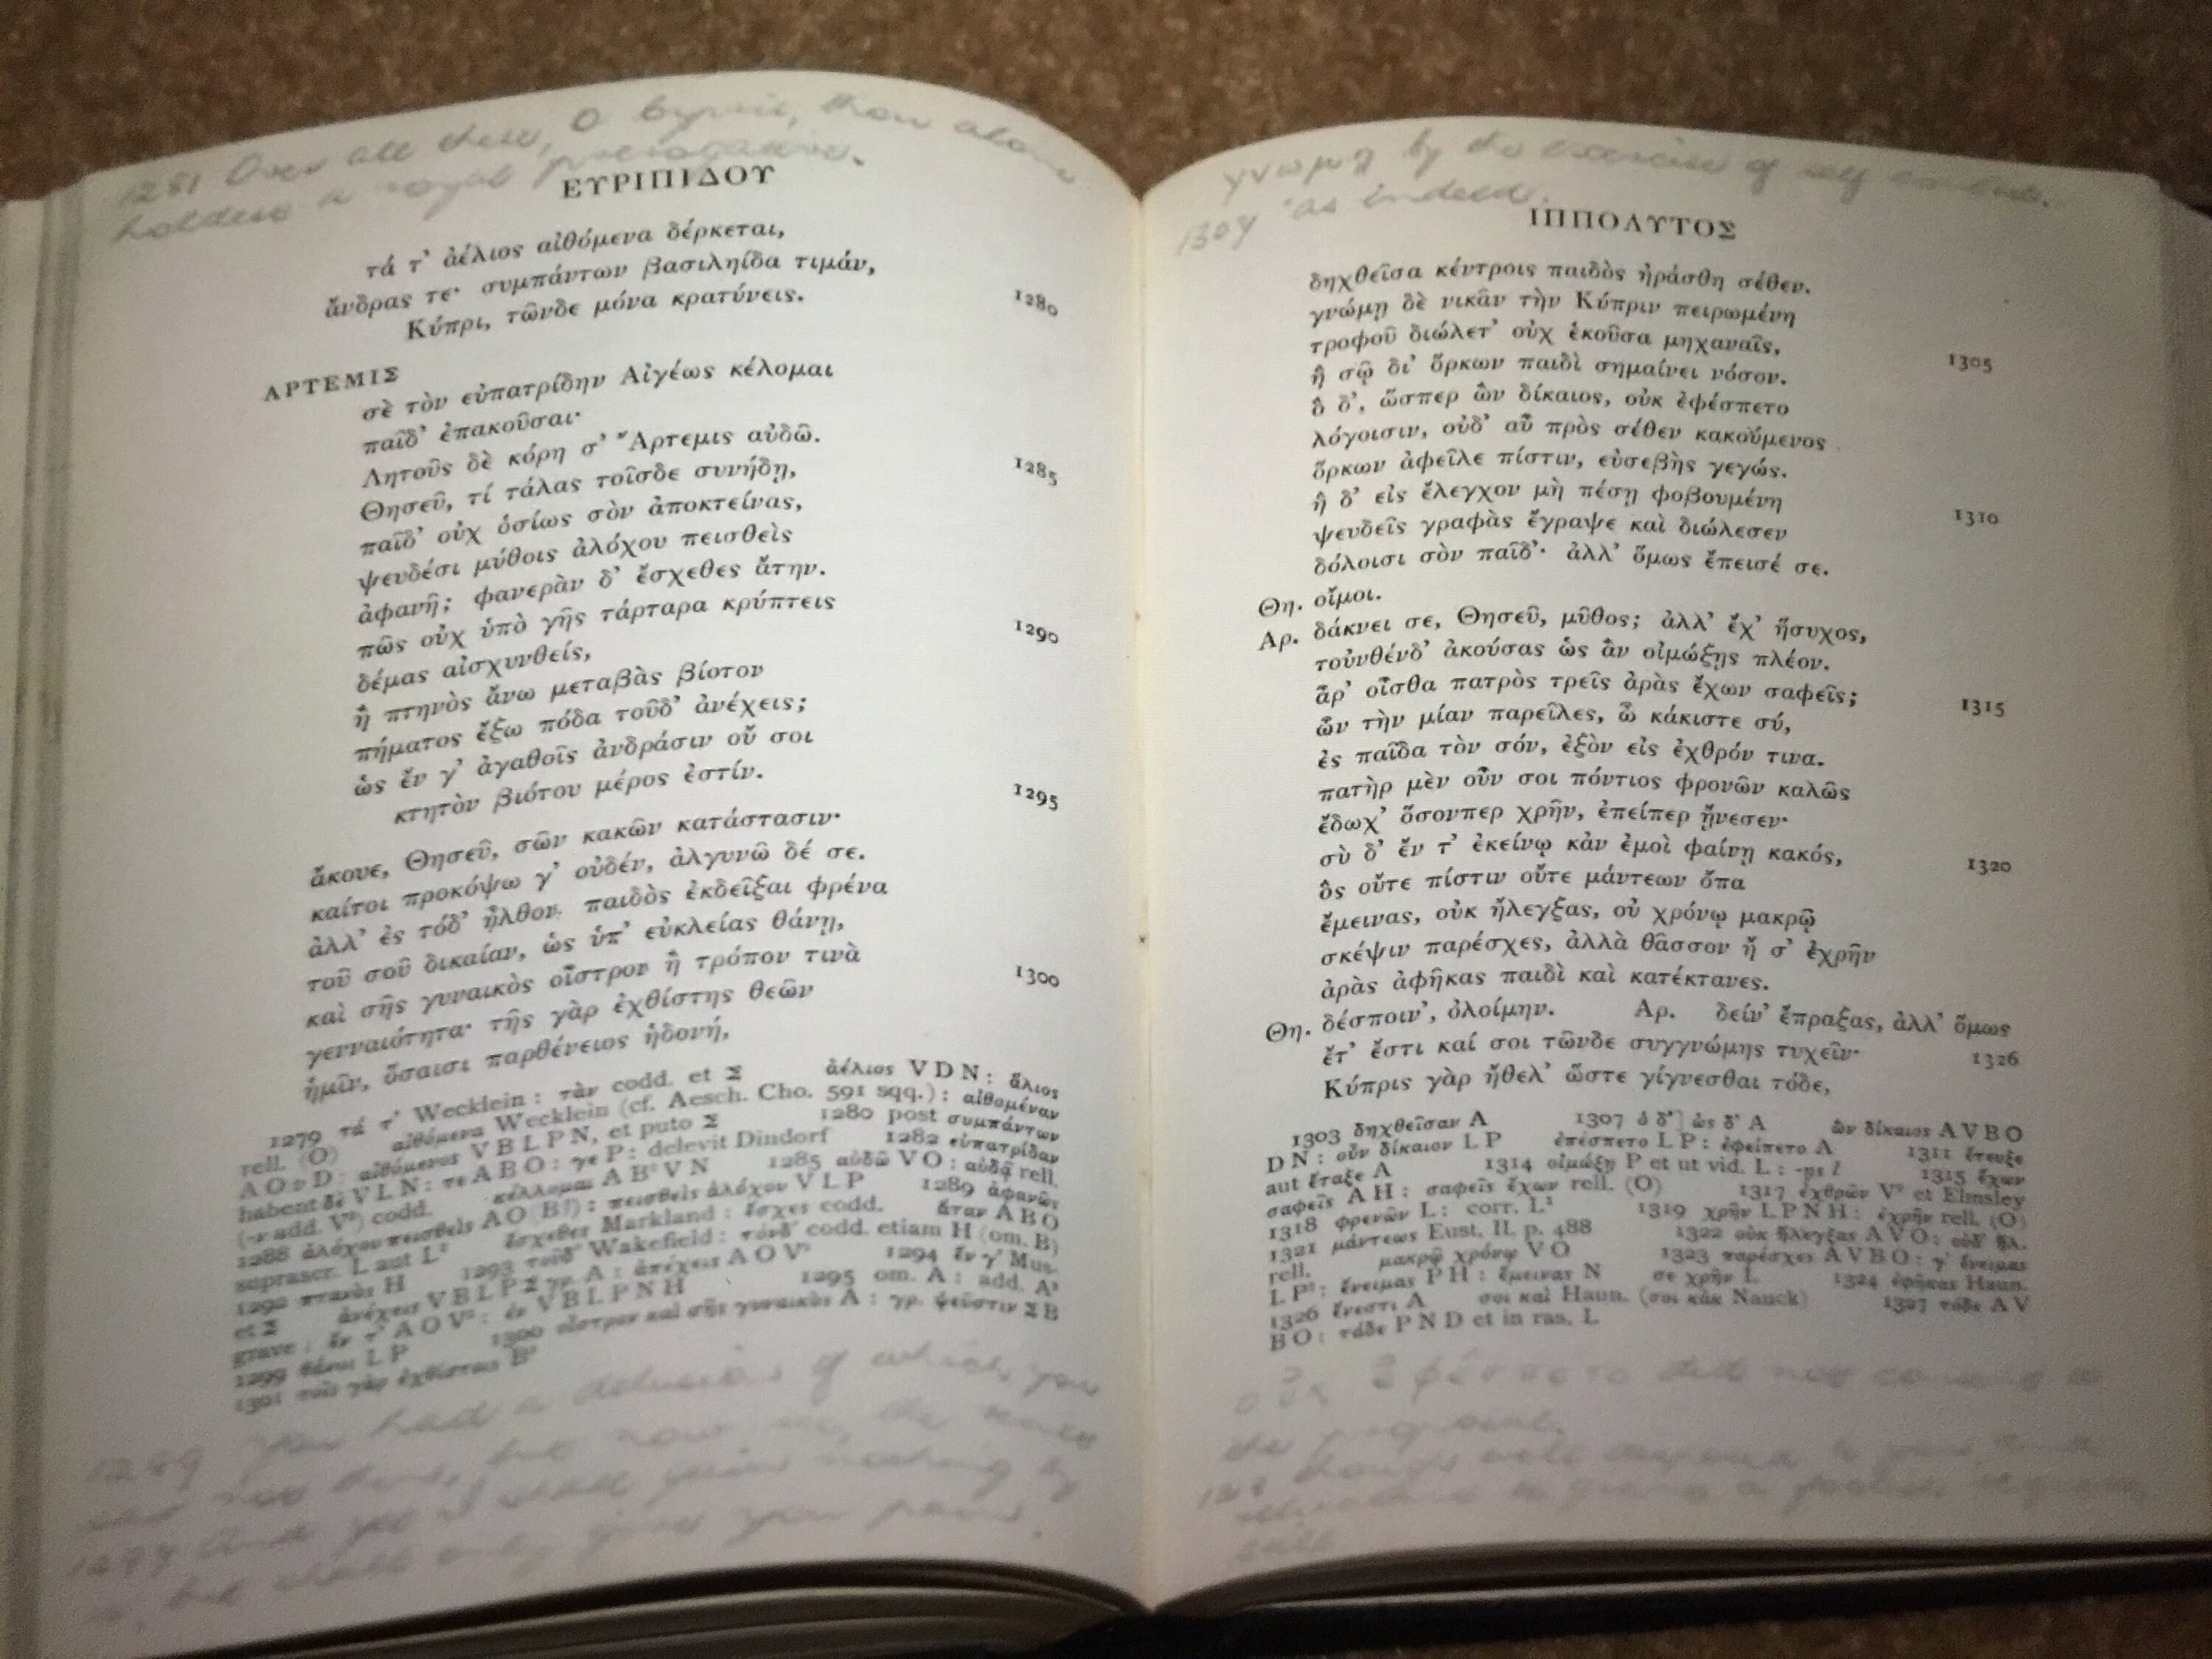 1281 Over all these, O Cypris, thou alone
holdest a royal prerogative.
ΕΥΡΙΠΙΔΟΥ
τά τ' ἀέλιος αἰθόμενα δέρκεται,
ἄνδρας τε· συμπάντων βασιληίδα τιμάν, 1280
Κύπρι, τῶνδε μόνα κρατύνεις.
ΑΡΤΕΜΙΣ
σὲ τὸν εὐπατρίδην Αἰγέως κέλομαι
παῖδ' ἐπακοῦσαι·
Λητοῦς δὲ κόρη σ' Ἄρτεμις αὐδῶ. 1285
Θησεῦ, τί τάλας τοῖσδε συνήδῃ,
παῖδ' οὐχ ὁσίως σὸν ἀποκτείνας,
ψευδέσι μύθοις ἀλόχου πεισθεὶς
ἀφανῆ; φανερὰν δ' ἔσχεθες ἄτην.
πῶς οὐχ ὑπὸ γῆς τάρταρα κρύπτεις 1290
δέμας αἰσχυνθείς,
ἢ πτηνὸς ἄνω μεταβὰς βίοτον
πήματος ἔξω πόδα τοῦδ' ἀνέχεις;
ὡς ἔν γ' ἀγαθοῖς ἀνδράσιν οὔ σοι
κτητὸν βιότου μέρος ἐστίν. 1295
ἄκουε, Θησεῦ, σῶν κακῶν κατάστασιν·
καίτοι προκόψω γ' οὐδέν, ἀλγυνῶ δέ σε.
ἀλλ' ἐς τόδ' ἦλθον, παιδὸς ἐκδεῖξαι φρένα
τοῦ σοῦ δικαίαν, ὡς ὑπ' εὐκλείας θάνῃ,
καὶ σῆς γυναικὸς οἶστρον ἢ τρόπον τινὰ 1300
γενναιότητα· τῆς γὰρ ἐχθίστης θεῶν
ἡμῖν, ὅσαισι παρθένειος ἡδονή,
1279 τά τ' Wecklein : τὰν codd. et Σ ἀέλιος V D N : ἅλιος
rell. (O) αἰθόμενα Wecklein (cf. Aesch. Cho. 591 sqq.) : αἰθομέναν
A O v D : αἰθόμενος V B L P N, et puto Σ 1280 post συμπάντων
habent δὲ V L N : τε A B O : γε P : delevit Dindorf 1282 εὐπατρίδαν
(-ν add. V²) codd. κέλλομαι A B² V N 1285 αὐδῶ V O : αὐδᾷ rell.
1288 ἀλόχου πεισθεὶς A O (B?) : πεισθεὶς ἀλόχου V L P 1289 ἀφανῶς
suprascr. L aut L² ἔσχεθες Markland : ἔσχες codd. ἄταν A B O
1292 πτανὸς H 1293 τοῦδ' Wakefield : τόνδ' codd. etiam H (om. B)
et Σ ἀνέχεις V B L P Σ γρ. A : ἀπέχεις A O V² 1294 ἔν γ' Mus-
grave : ἔν τ' A O V² : ἐν V B L P N H 1295 om. A : add. A²
1299 θάνοι L P 1300 οἶστρον καὶ σῆς γυναικὸς A : γρ. ψεῦστιν Σ B
1301 ταῖς γὰρ ἐχθίσταις B²
1289 You had a delusion of which you
but now
1297 And yet I shall gain nothing by
, but shall only give you pain.
γνωμῃ by the exercise of self
1307 'as indeed.
ΙΠΠΟΛΥΤΟΣ
δηχθεῖσα κέντροις παιδὸς ἠράσθη σέθεν.
γνώμῃ δὲ νικᾶν τὴν Κύπριν πειρωμένη
τροφοῦ διώλετ' οὐχ ἑκοῦσα μηχαναῖς, 1305
ἣ σῷ δι' ὅρκων παιδὶ σημαίνει νόσον.
ὃ δ', ὥσπερ ὢν δίκαιος, οὐκ ἐφέσπετο
λόγοισιν, οὐδ' αὖ πρὸς σέθεν κακούμενος
ὅρκων ἀφεῖλε πίστιν, εὐσεβὴς γεγώς.
ἣ δ' εἰς ἔλεγχον μὴ πέσῃ φοβουμένη 1310
ψευδεῖς γραφὰς ἔγραψε καὶ διώλεσεν
δόλοισι σὸν παῖδ'· ἀλλ' ὅμως ἔπεισέ σε.
Θη. οἴμοι.
Αρ. δάκνει σε, Θησεῦ, μῦθος; ἀλλ' ἔχ' ἥσυχος,
τοὐνθένδ' ἀκούσας ὡς ἂν οἰμώξῃς πλέον.
ἆρ' οἶσθα πατρὸς τρεῖς ἀρὰς ἔχων σαφεῖς; 1315
ὧν τὴν μίαν παρεῖλες, ὦ κάκιστε σύ,
ἐς παῖδα τὸν σόν, ἐξὸν εἰς ἐχθρόν τινα.
πατὴρ μὲν οὖν σοι πόντιος φρονῶν καλῶς
ἔδωχ' ὅσονπερ χρῆν, ἐπείπερ ᾔνεσεν·
σὺ δ' ἔν τ' ἐκείνῳ κἀν ἐμοὶ φαίνῃ κακός, 1320
ὃς οὔτε πίστιν οὔτε μάντεων ὄπα
ἔμεινας, οὐκ ἤλεγξας, οὐ χρόνῳ μακρῷ
σκέψιν παρέσχες, ἀλλὰ θᾶσσον ἤ σ' ἐχρῆν
ἀρὰς ἀφῆκας παιδὶ καὶ κατέκτανες.
Θη. δέσποιν', ὀλοίμην. Αρ. δείν' ἔπραξας, ἀλλ' ὅμως
ἔτ' ἔστι καί σοι τῶνδε συγγνώμης τυχεῖν· 1326
Κύπρις γὰρ ἤθελ' ὥστε γίγνεσθαι τάδε,
1303 δηχθεῖσαν A 1307 ὁ δ'] ὡς δ' A ὢν δίκαιος A V B O
D N : οὖν δίκαιον L P ἐπέσπετο L P : ἐφείπετο A 1311 ἔτευξε
aut ἔταξε A 1314 οἰμώξῃ P et ut vid. L : -ῃς l 1315 ἔχων
σαφεῖς A H : σαφεῖς ἔχων rell. (O) 1317 ἐχθρῶν V² et Elmsley
1318 φρενῶν L : corr. L² 1319 χρῆν L P N H : ἐχρῆν rell. (O)
1321 μάντεως Eust. Il. p. 488 1322 οὐκ ἤλεγξας A V O : οὐδ' ἤλ.
rell. μακρῷ χρόνῳ V O 1323 παρέσχες A V B O : γ' ἔνειμας
L P² : ἔνειμας P H : ἔμεινας N σε χρῆν L 1324 ἐφῆκας Haun.
1326 ἔνεστι A σοι καὶ Haun. (σοι κἀκ Nauck) 1327 τάδε A V
B O : τάδε P N D et in ras. L
οὐκ ἐφέσπετο did not consent to
the proposal.